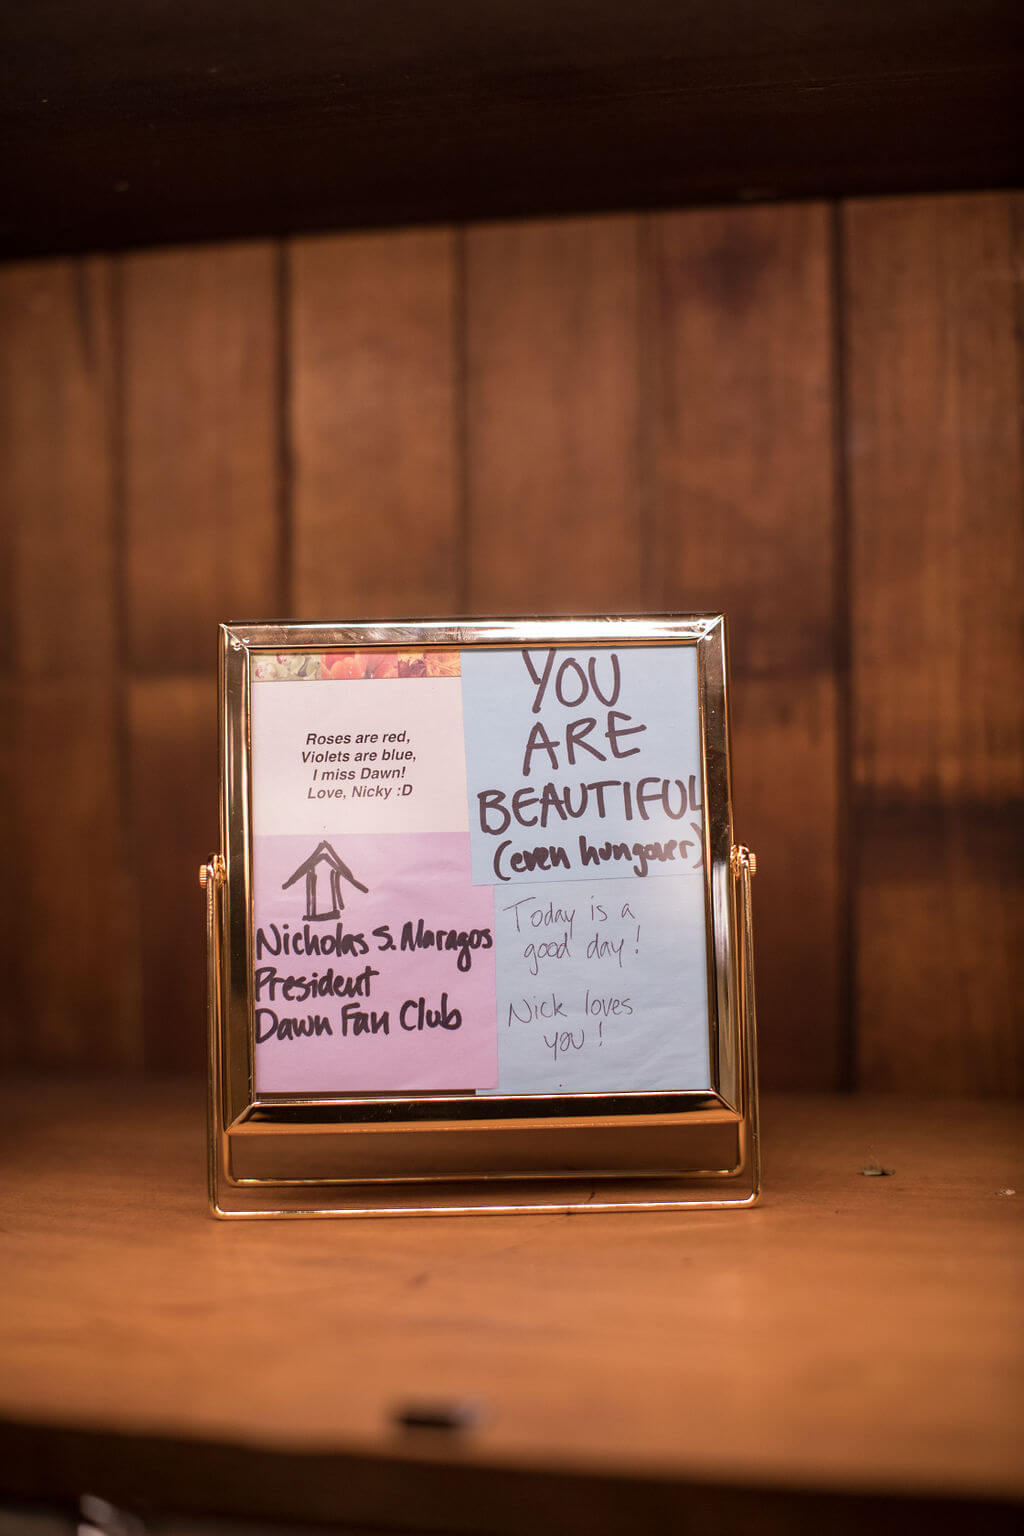 Roses are red,
Violets are blue,
I miss Dawn!
Love, Nicky :D
YOU
ARE
BEAUTIFUL
(even hungover)
Nicholas S. Maragos
President
Dawn Fan Club
Today is a
good day!
Nick loves
you!